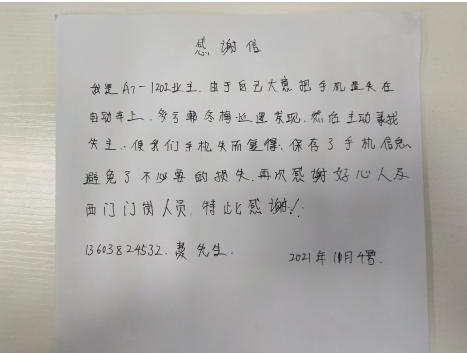 感谢信
我是A7-1202业主.由于自己大意把手机遗失在
电动车上.多亏韩冬梅巡逻发现.然后主动寻找
失主.使我们手机失而复得.保存了手机信息
避免了不必要的损失.再次感谢好心人及
西门门岗人员.特此感谢!
13603824532.樊先生.
2021年11月4号.